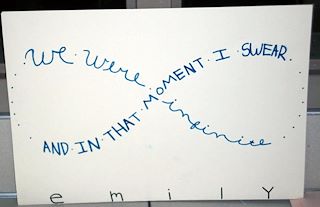 AND IN THAT MOMENT I SWEAR
we were infinite
emilY